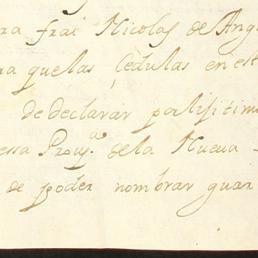 ra frai Nicolas de Ang
ra que las Cedulas en est
de declarar por lisitim
essa Prouª. de la Nueua
de poder nombrar guar